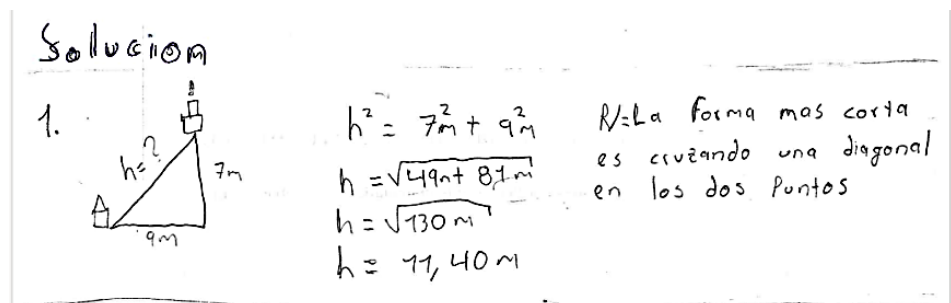 Solucion
1.
h=?
7m
9m
h² = 7²m + 9²m
h = √49m + 81m
h = √130m
h = 11,40m
R/=La forma mas corta
es cruzando una diagonal
en los dos Puntos